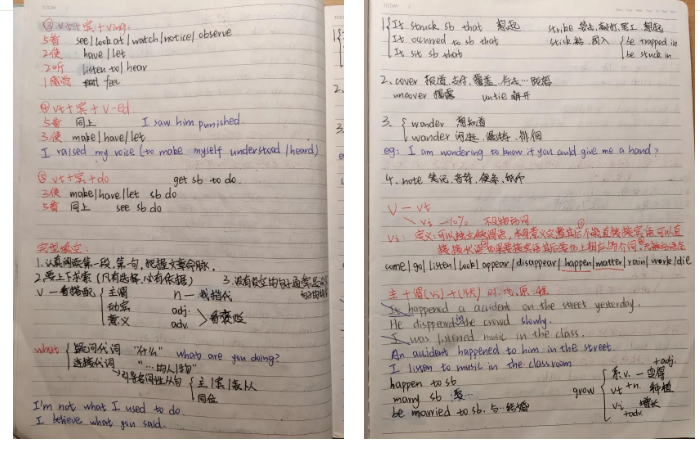 ③ vt+宾+ving.
5看 see/look at/watch/notice/observe
2使 have/let
2听 listen to/hear
1感觉 feel
④ vt+宾+V-ed.
5看 同上 I saw him punished.
3使 make/have/let
I raised my voice (to make myself understood/heard)
⑤ vt+宾+do get sb to do.
3使 make/have/let sb do
5看 同上 see sb do
完型填空:
1.认真阅读第一段,第一句,把握文章命脉.
2.要上下求索(只有选择,没有依据) 3.
V—看搭配 主谓 n—找指代
动宾 adj.
意义 adv. 看褒贬
what 疑问代词 "什么" what are you doing?
连接代词 "…的人/物"
引导名词性从句 主/宾/表/从
同位
I'm not what I used to do.
I believe what you said.
1. It struck sb that 想起
It occurred to sb that
It hit sb that
strike 罢工 想起
stick 粘 陷入 be trapped in
be stuck in
2. cover 报道,支付,覆盖
uncover 揭露 untie 解开
3. wonder 想知道
wander 闲逛 徘徊
eg: I am wondering to know if you could give me a hand?
4. note 笔记,音符,便条,纸币
V — vt
vi —10% 不及物动词
come/go/listen/look/appear/disappear/happen/matter/rain/work/die
主+谓(vi)+(状) 时.地.原.
It happened a accident on the street yesterday.
He disppeared the crowd slowly.
I was listened music in the class.
An accident happened to him in the street.
I listen to music in the classroom
happen to sb
marry sb 娶…
be married to sb. 与…结婚
grow 系v. — 变得 +adj.
vt +n. 种植
vi 增长
+adv.